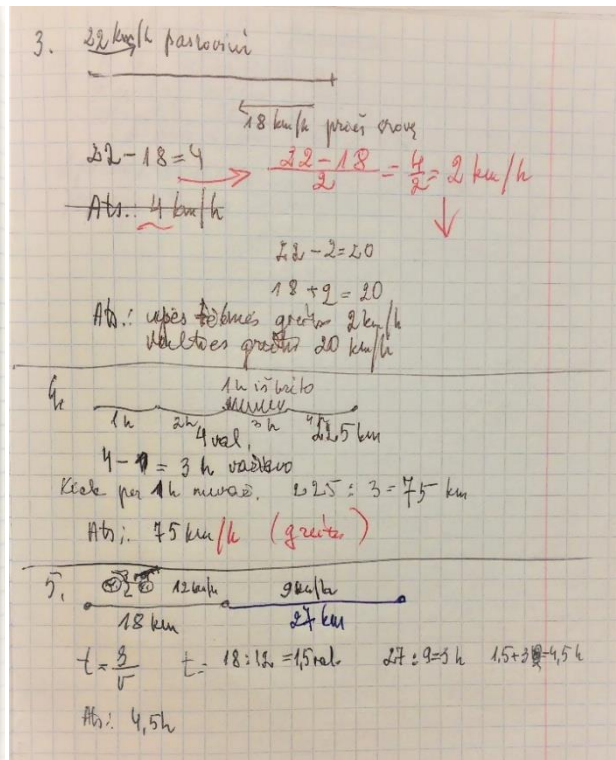 3. 22 km/h pasroviui
18 km/h prieš srovę
22 - 18 = 4 → (22 - 18)/2 = 4/2 = 2 km/h
Ats.: 4 km/h
22 - 2 = 20
18 + 2 = 20
Ats.: upės tėkmės greitis 2 km/h
valties greitis 20 km/h
4. 1h išbuvo
1h 2h 3h 4h
4 val. 225 km
4 - 1 = 3 h važiavo
Kiek per 1h nuvaž. 225 : 3 = 75 km
Ats.: 75 km/h (greitis)
5. 12 km/h 9 km/h
18 km 27 km
t = s/v t = 18 : 12 = 1,5 val. 27 : 9 = 3 h 1,5 + 3 = 4,5 h
Ats.: 4,5 h